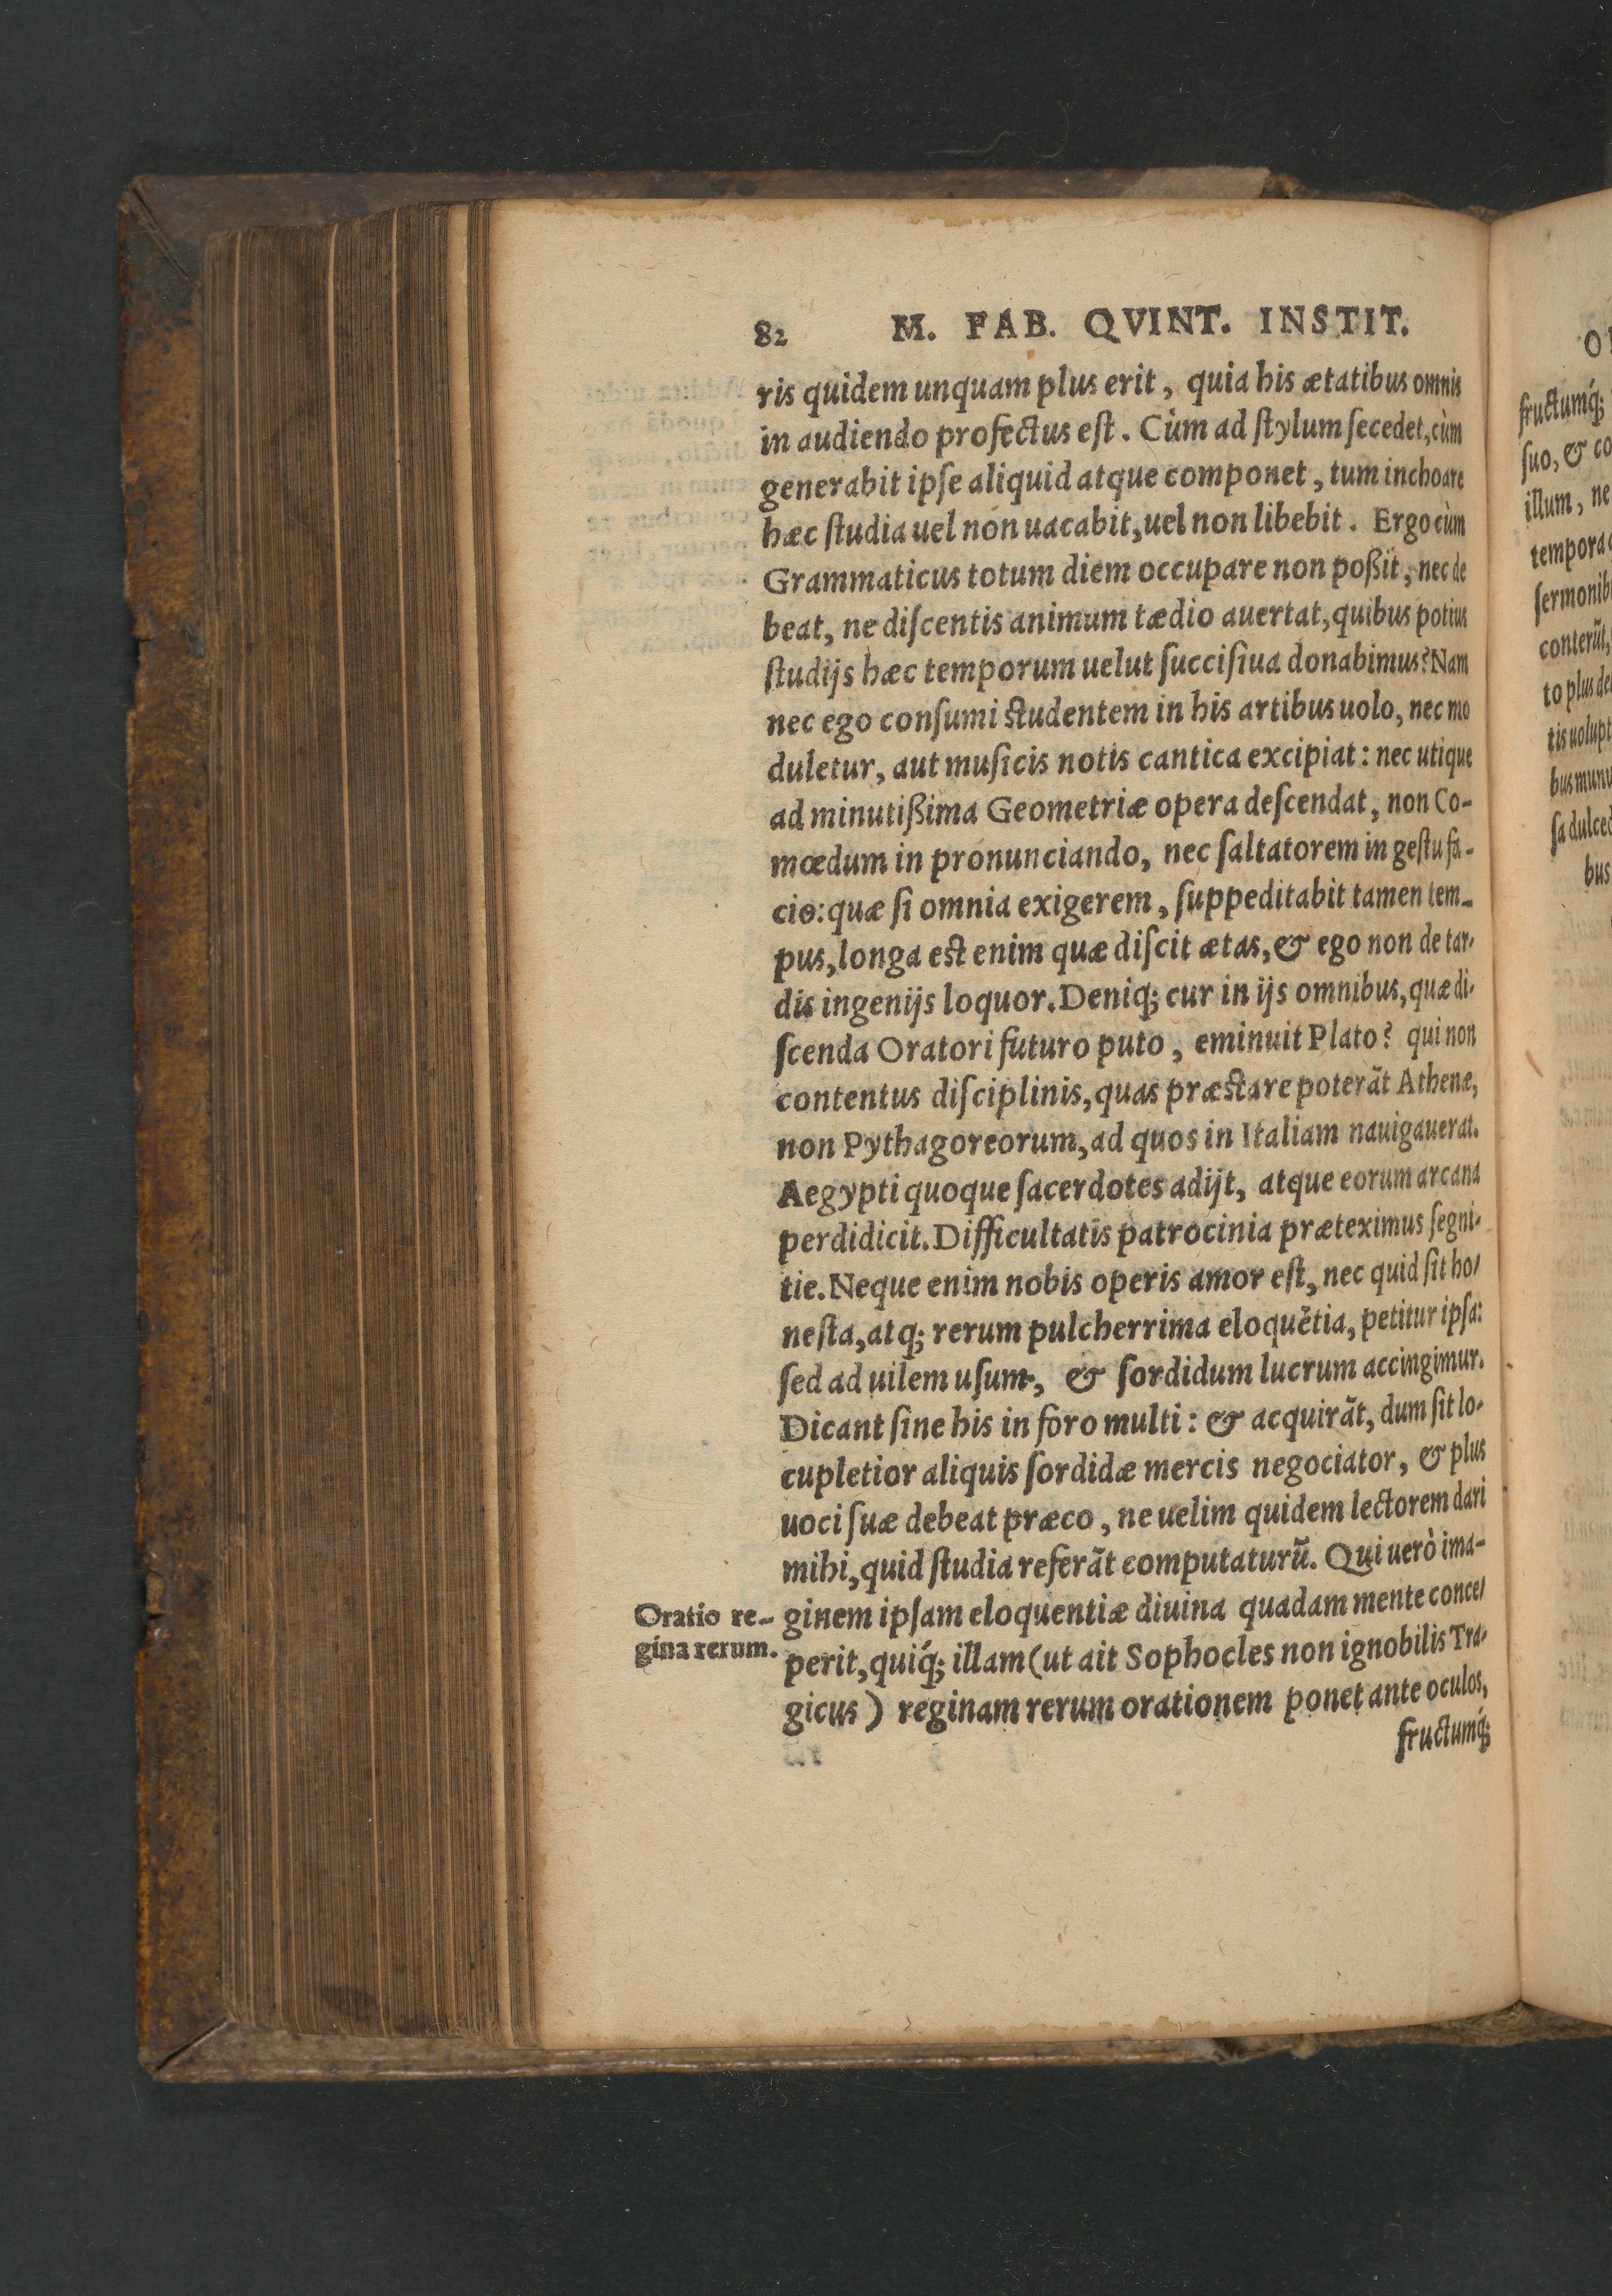 82 M. FAB. QVINT. INSTIT.
ris quidem unquam plus erit, quia his ætatibus omnis
in audiendo profectus eſt. Cùm ad ſtylum ſecedet, cùm
generabit ipſe aliquid atque componet, tum inchoare
hæc ſtudia uel non uacabit, uel non libebit. Ergo cùm
Grammaticus totum diem occupare non poßit, nec de
beat, ne diſcentis animum tædio auertat, quibus potius
ſtudijs hæc temporum uelut ſucciſiua donabimus? Nam
nec ego conſumi ſtudentem in his artibus uolo, nec mo
duletur, aut muſicis notis cantica excipiat: nec utique
ad minutißima Geometriæ opera deſcendat, non Co-
mœdum in pronunciando, nec ſaltatorem in geſtu fa-
cio: quæ ſi omnia exigerem, ſuppeditabit tamen tem-
pus, longa eſt enim quæ diſcit ætas, & ego non de tar-
dis ingenijs loquor. Deniq; cur in ijs omnibus, quæ di-
ſcenda Oratori futuro puto, eminuit Plato? qui non
contentus diſciplinis, quas præſtare poterãt Athenæ,
non Pythagoreorum, ad quos in Italiam nauigauerat.
Aegypti quoque ſacerdotes adijt, atque eorum arcana
perdidicit. Difficultatis patrocinia præteximus ſegni-
tie. Neque enim nobis operis amor eſt, nec quid ſit ho-
neſta, atq; rerum pulcherrima eloquẽtia, petitur ipſa:
ſed ad uilem uſum, & ſordidum lucrum accingimur.
Dicant ſine his in foro multi: & acquirãt, dum ſit lo-
cupletior aliquis ſordidæ mercis negociator, & plus
uoci ſuæ debeat præco, ne uelim quidem lectorem dari
mihi, quid ſtudia referãt computaturũ. Qui uerò ima-
ginem ipſam eloquentiæ diuina quadam mente conce-
perit, quiq́; illam (ut ait Sophocles non ignobilis Tra-
gicus) reginam rerum orationem ponet ante oculos,
fructumq́;
Oratio re-
gina rerum.
fructumq́;
ſuo, & co
illum, ne
tempora
ſermonib
conterũt,
to plus de
tis uolupt
bus